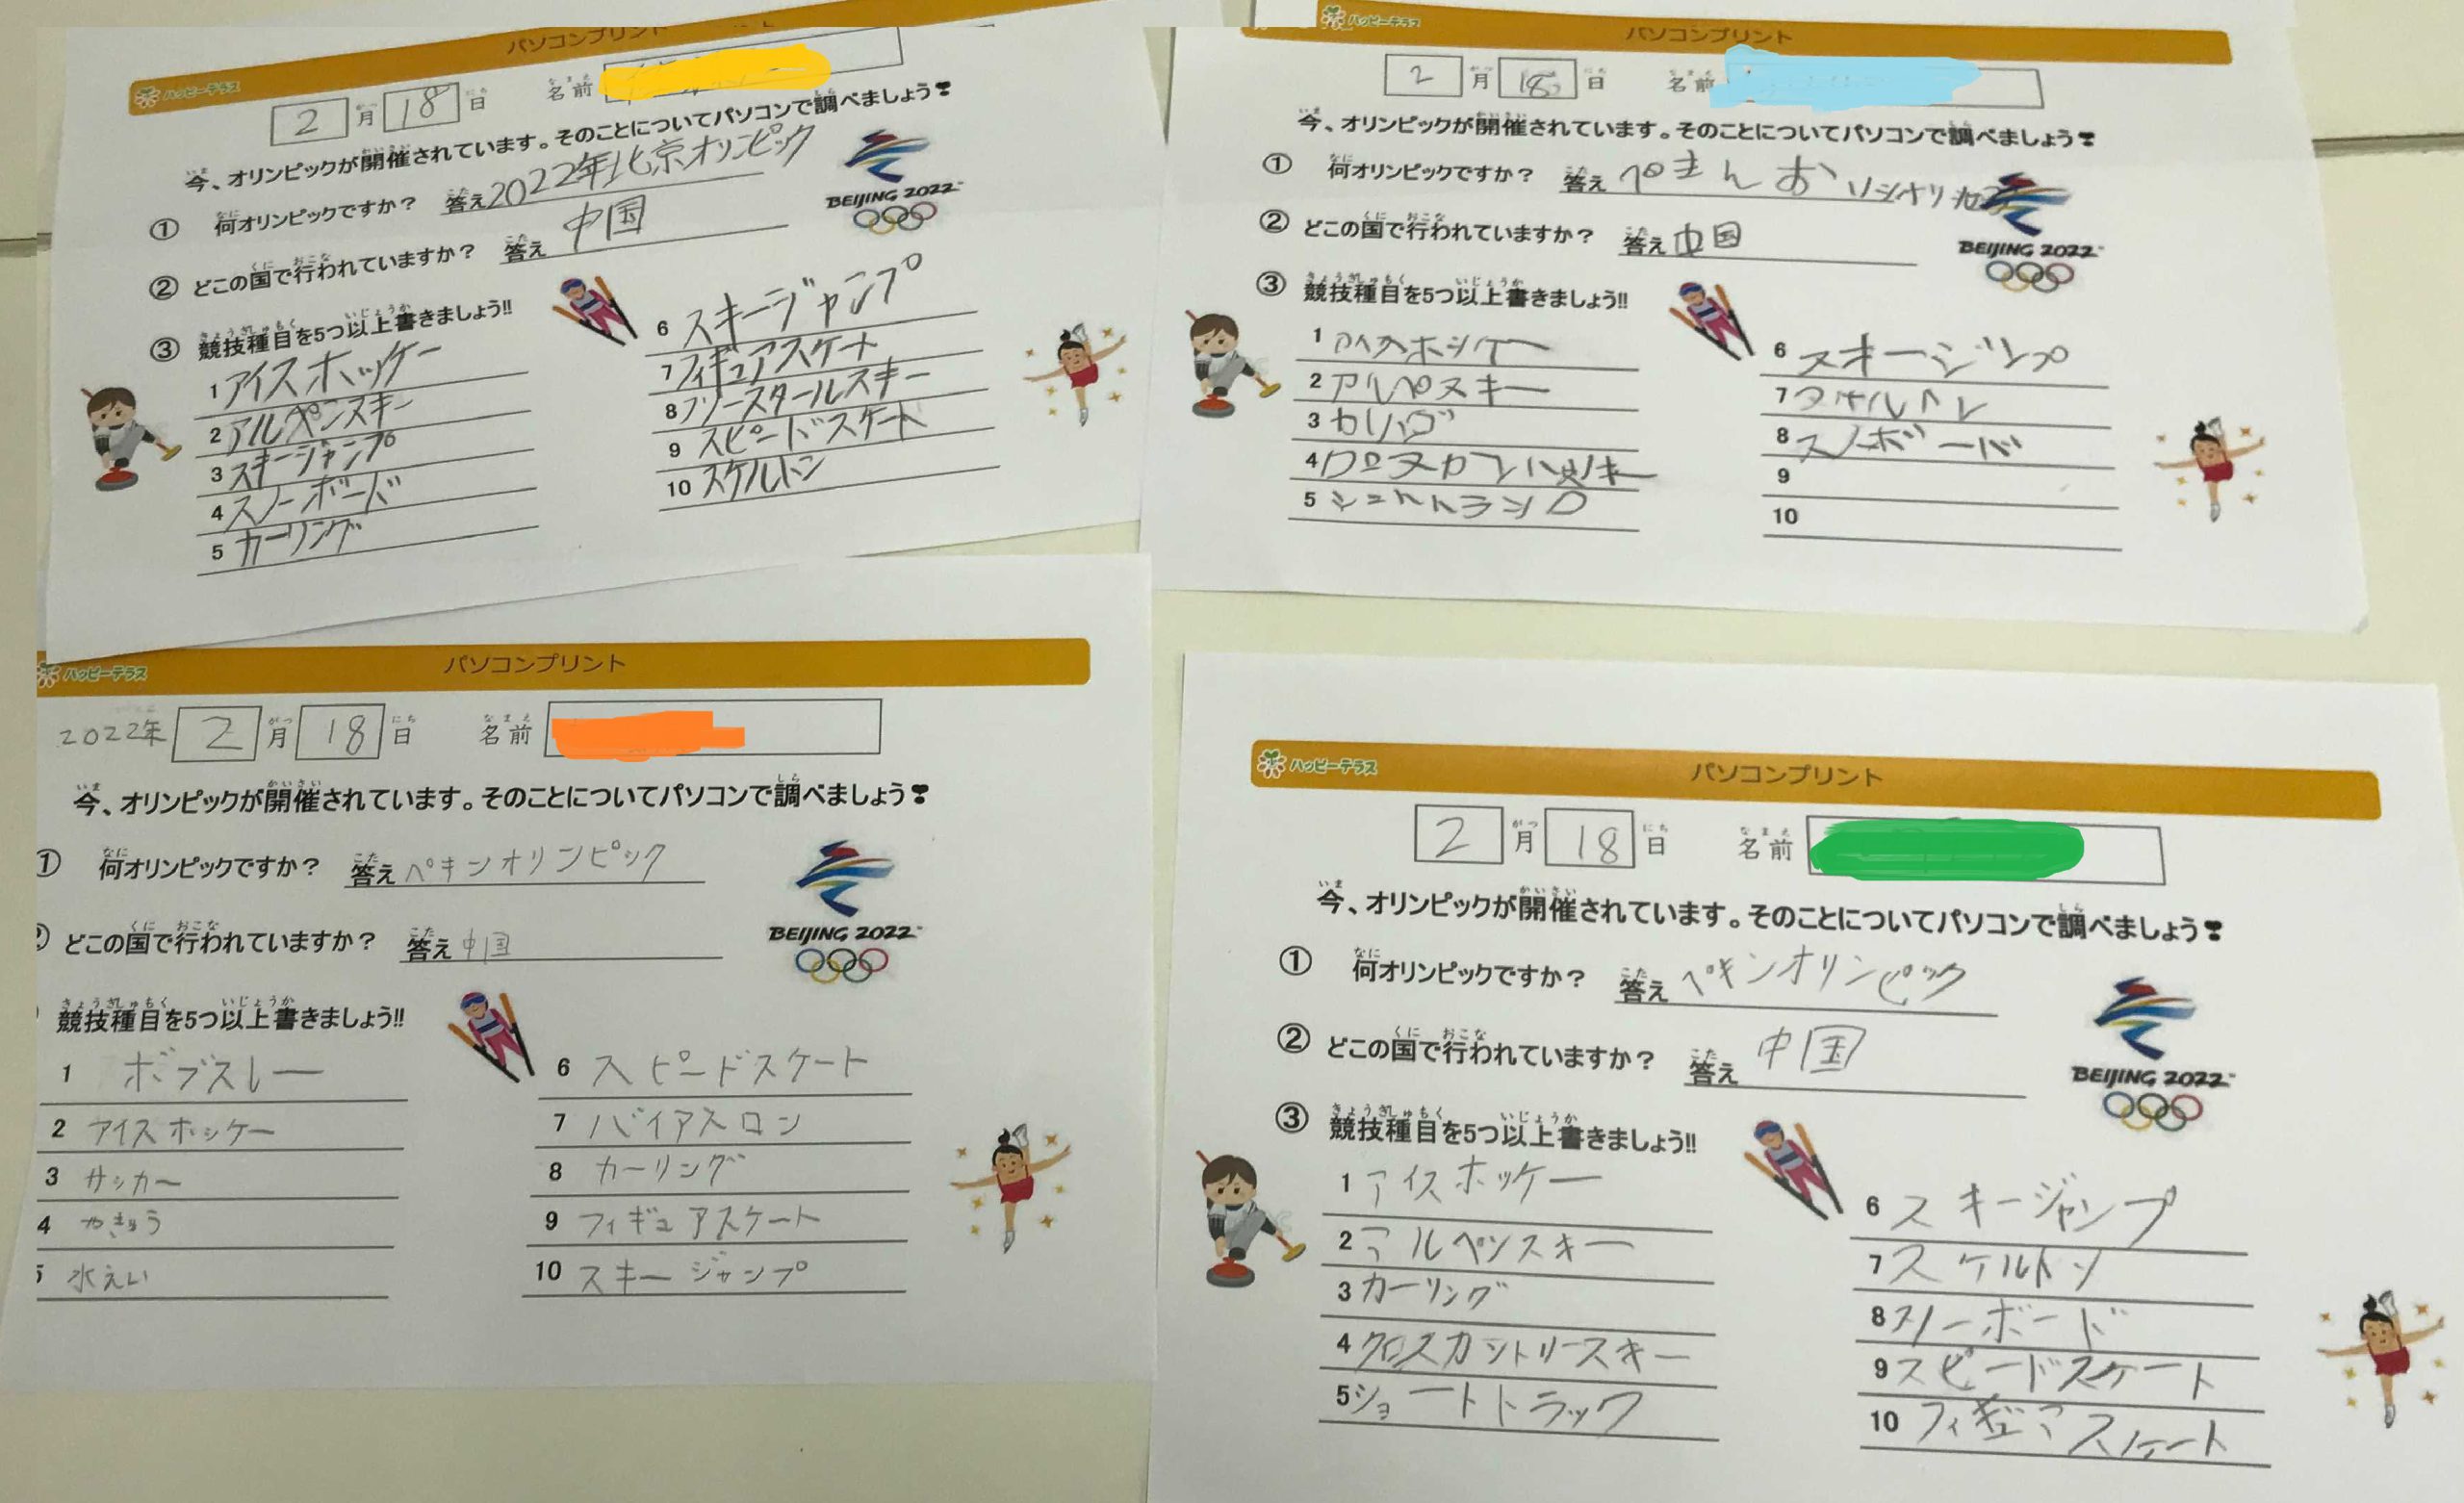 パソコンプリント
ハッピーテラス
2月18日 名前
今、オリンピックが開催されています。そのことについてパソコンで調べましょう❣
① 何オリンピックですか? 答え 2022年北京オリンピック
② どこの国で行われていますか? 答え 中国
BEIJING 2022
③ 競技種目を5つ以上書きましょう!!
1 アイスホッケー
2 アルペンスキー
3 スキージャンプ
4 スノーボード
5 カーリング
6 スキージャンプ
7 フィギュアスケート
8 フリースタールスキー
9 スピードスケート
10 スケルトン
ハッピーテラス
パソコンプリント
2月18日 名前
今、オリンピックが開催されています。そのことについてパソコンで調べましょう❣
① 何オリンピックですか? 答え ぺきんお
② どこの国で行われていますか? 答え 中国
BEIJING 2022
③ 競技種目を5つ以上書きましょう!!
1
2 アルペスキー
3
4
5
6
7
8 スノーボード
9
10
ハッピーテラス
パソコンプリント
2022年 2月18日 名前
今、オリンピックが開催されています。そのことについてパソコンで調べましょう❣
① 何オリンピックですか? 答え ペキンオリンピック
どこの国で行われていますか? 答え 中国
BEIJING 2022
競技種目を5つ以上書きましょう!!
1 ボブスレー
2 アイスホッケー
3 サッカー
4 やきゅう
5 水えい
6 スピードスケート
7 バイアスロン
8 カーリング
9 フィギュアスケート
10 スキージャンプ
ハッピーテラス
パソコンプリント
2月18日 名前
今、オリンピックが開催されています。そのことについてパソコンで調べましょう❣
① 何オリンピックですか? 答え ペキンオリンピック
② どこの国で行われていますか? 答え 中国
BEIJING 2022
③ 競技種目を5つ以上書きましょう!!
1 アイスホッケー
2 アルペンスキー
3 カーリング
4 クロスカントリースキー
5 ショートトラック
6 スキージャンプ
7 スケルトン
8 スノーボード
9 スピードスケート
10 フィギュアスケート